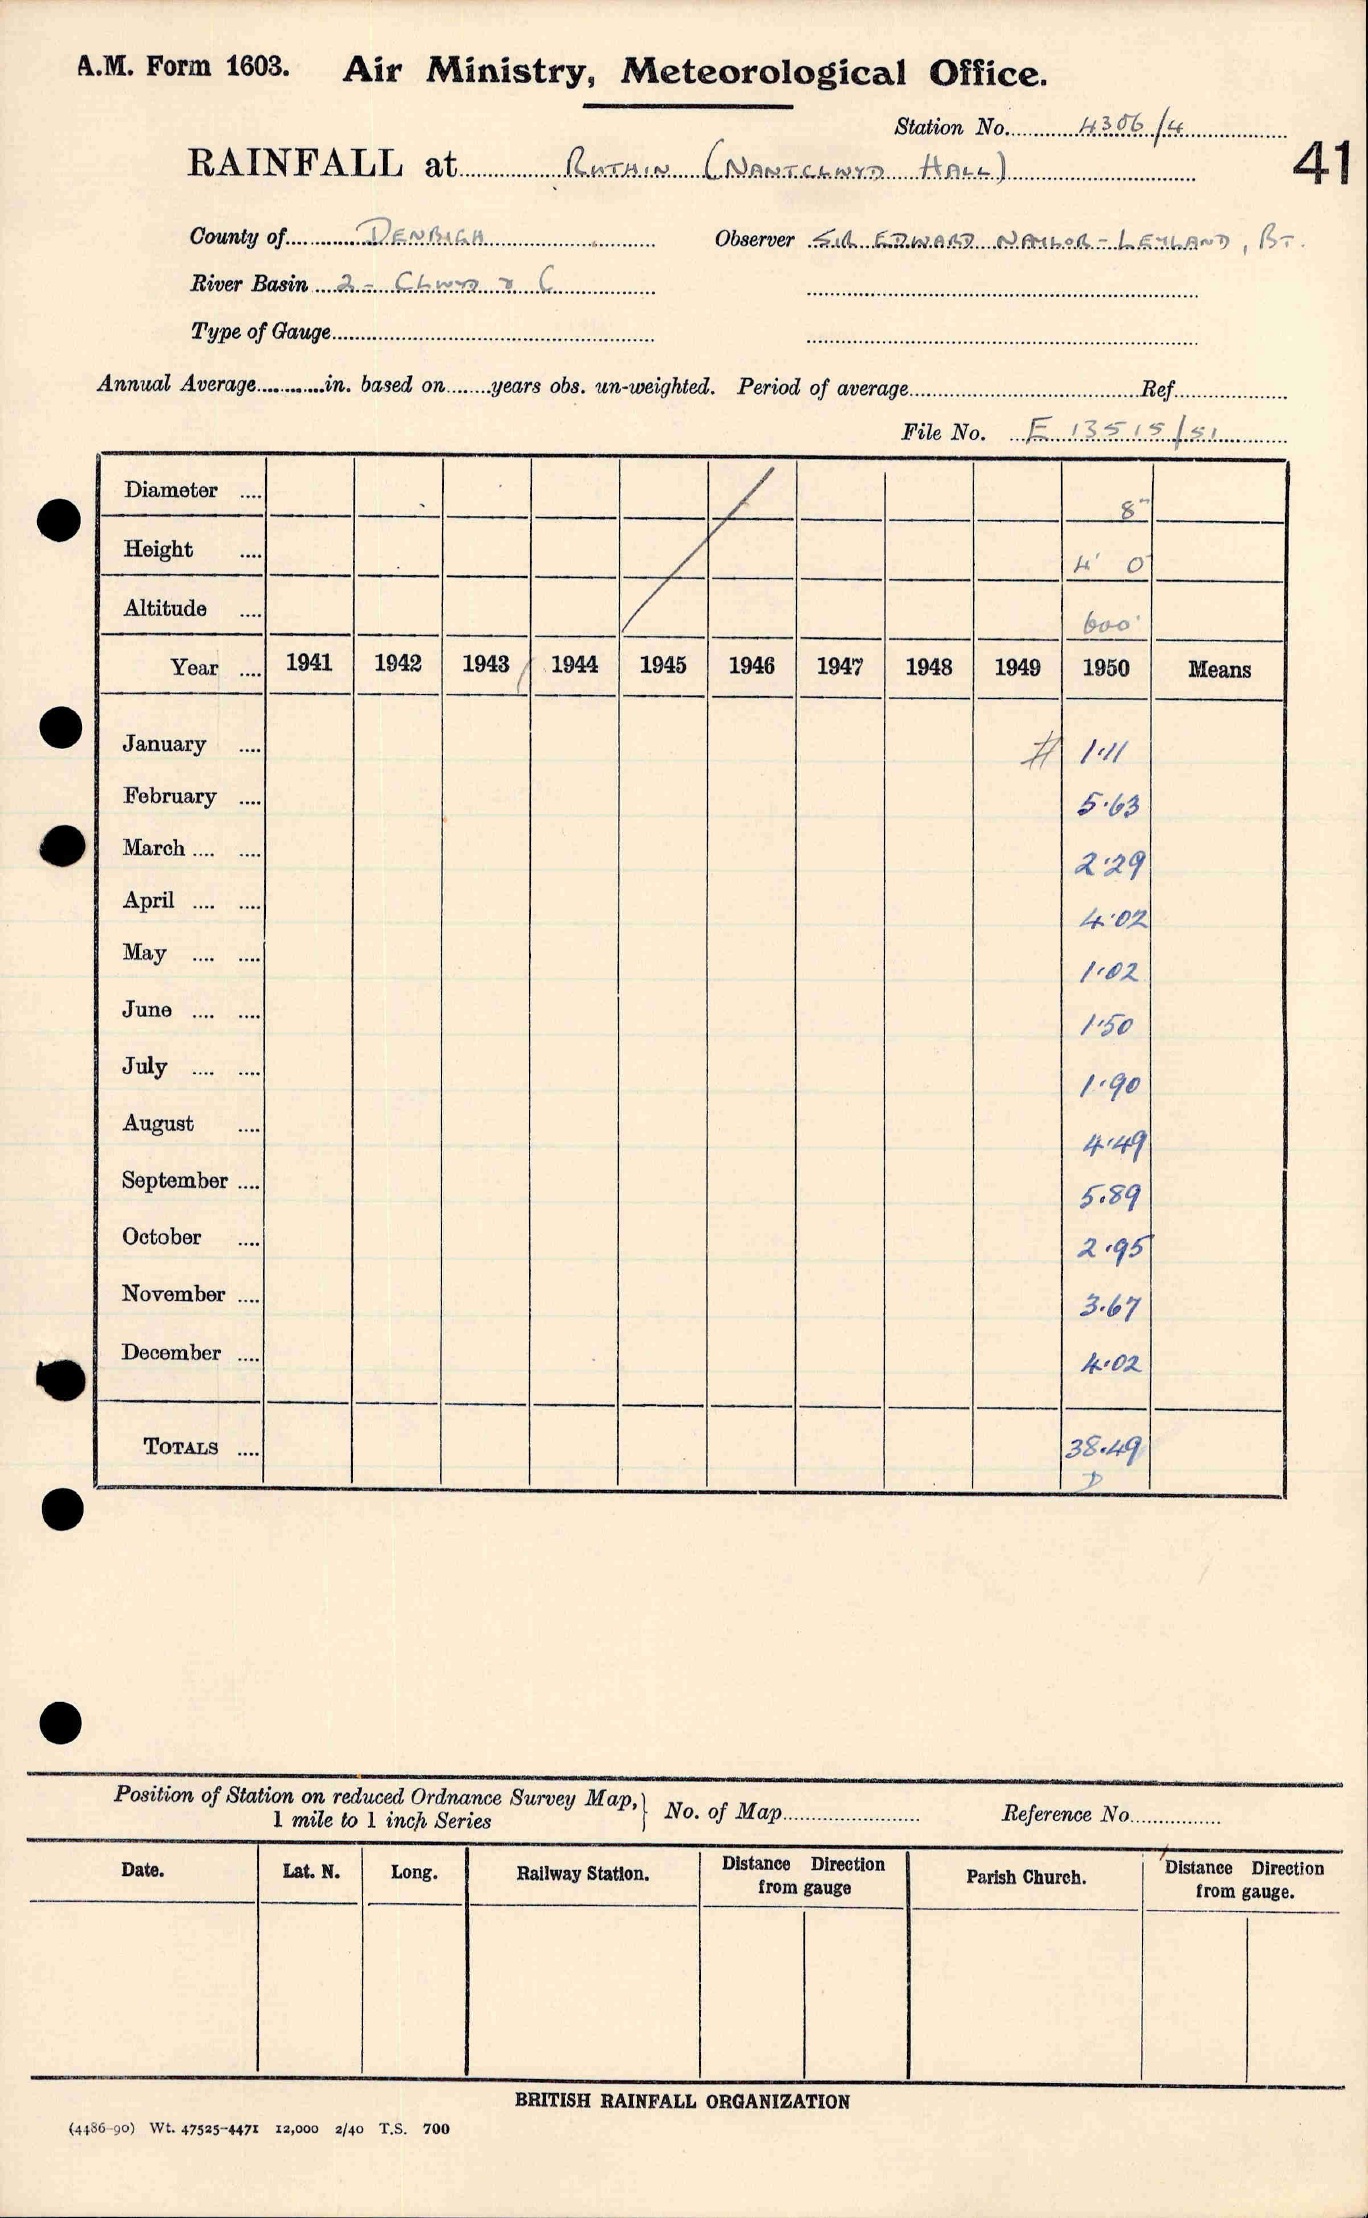 A.M. Form 1603. Air Ministry, Meteorological Office.
Station No. 4306/4
RAINFALL at RUTHIN (NANTCLWYD HALL) 41
County of DENBIGH Observer SIR EDWARD NAYLOR-LEYLAND, BT.
River Basin 2 - CLWYD & C
Type of Gauge
Annual Average in. based on years obs. un-weighted. Period of average Ref.
File No. E 13515/51
Diameter 8"
Height 4' 0"
Altitude 600'
Year 1941 1942 1943 1944 1945 1946 1947 1948 1949 1950 Means
January # 1.11
February 5.63
March 2.29
April 4.02
May 1.02
June 1.50
July 1.90
August 4.49
September 5.89
October 2.95
November 3.67
December 4.02
TOTALS 38.49
D
Position of Station on reduced Ordnance Survey Map,
1 mile to 1 inch Series
No. of Map Reference No.
Date. Lat. N. Long. Railway Station. Distance Direction from gauge Parish Church. Distance Direction from gauge.
BRITISH RAINFALL ORGANIZATION
(4486-90) Wt. 47525-4471 12,000 2/40 T.S. 700